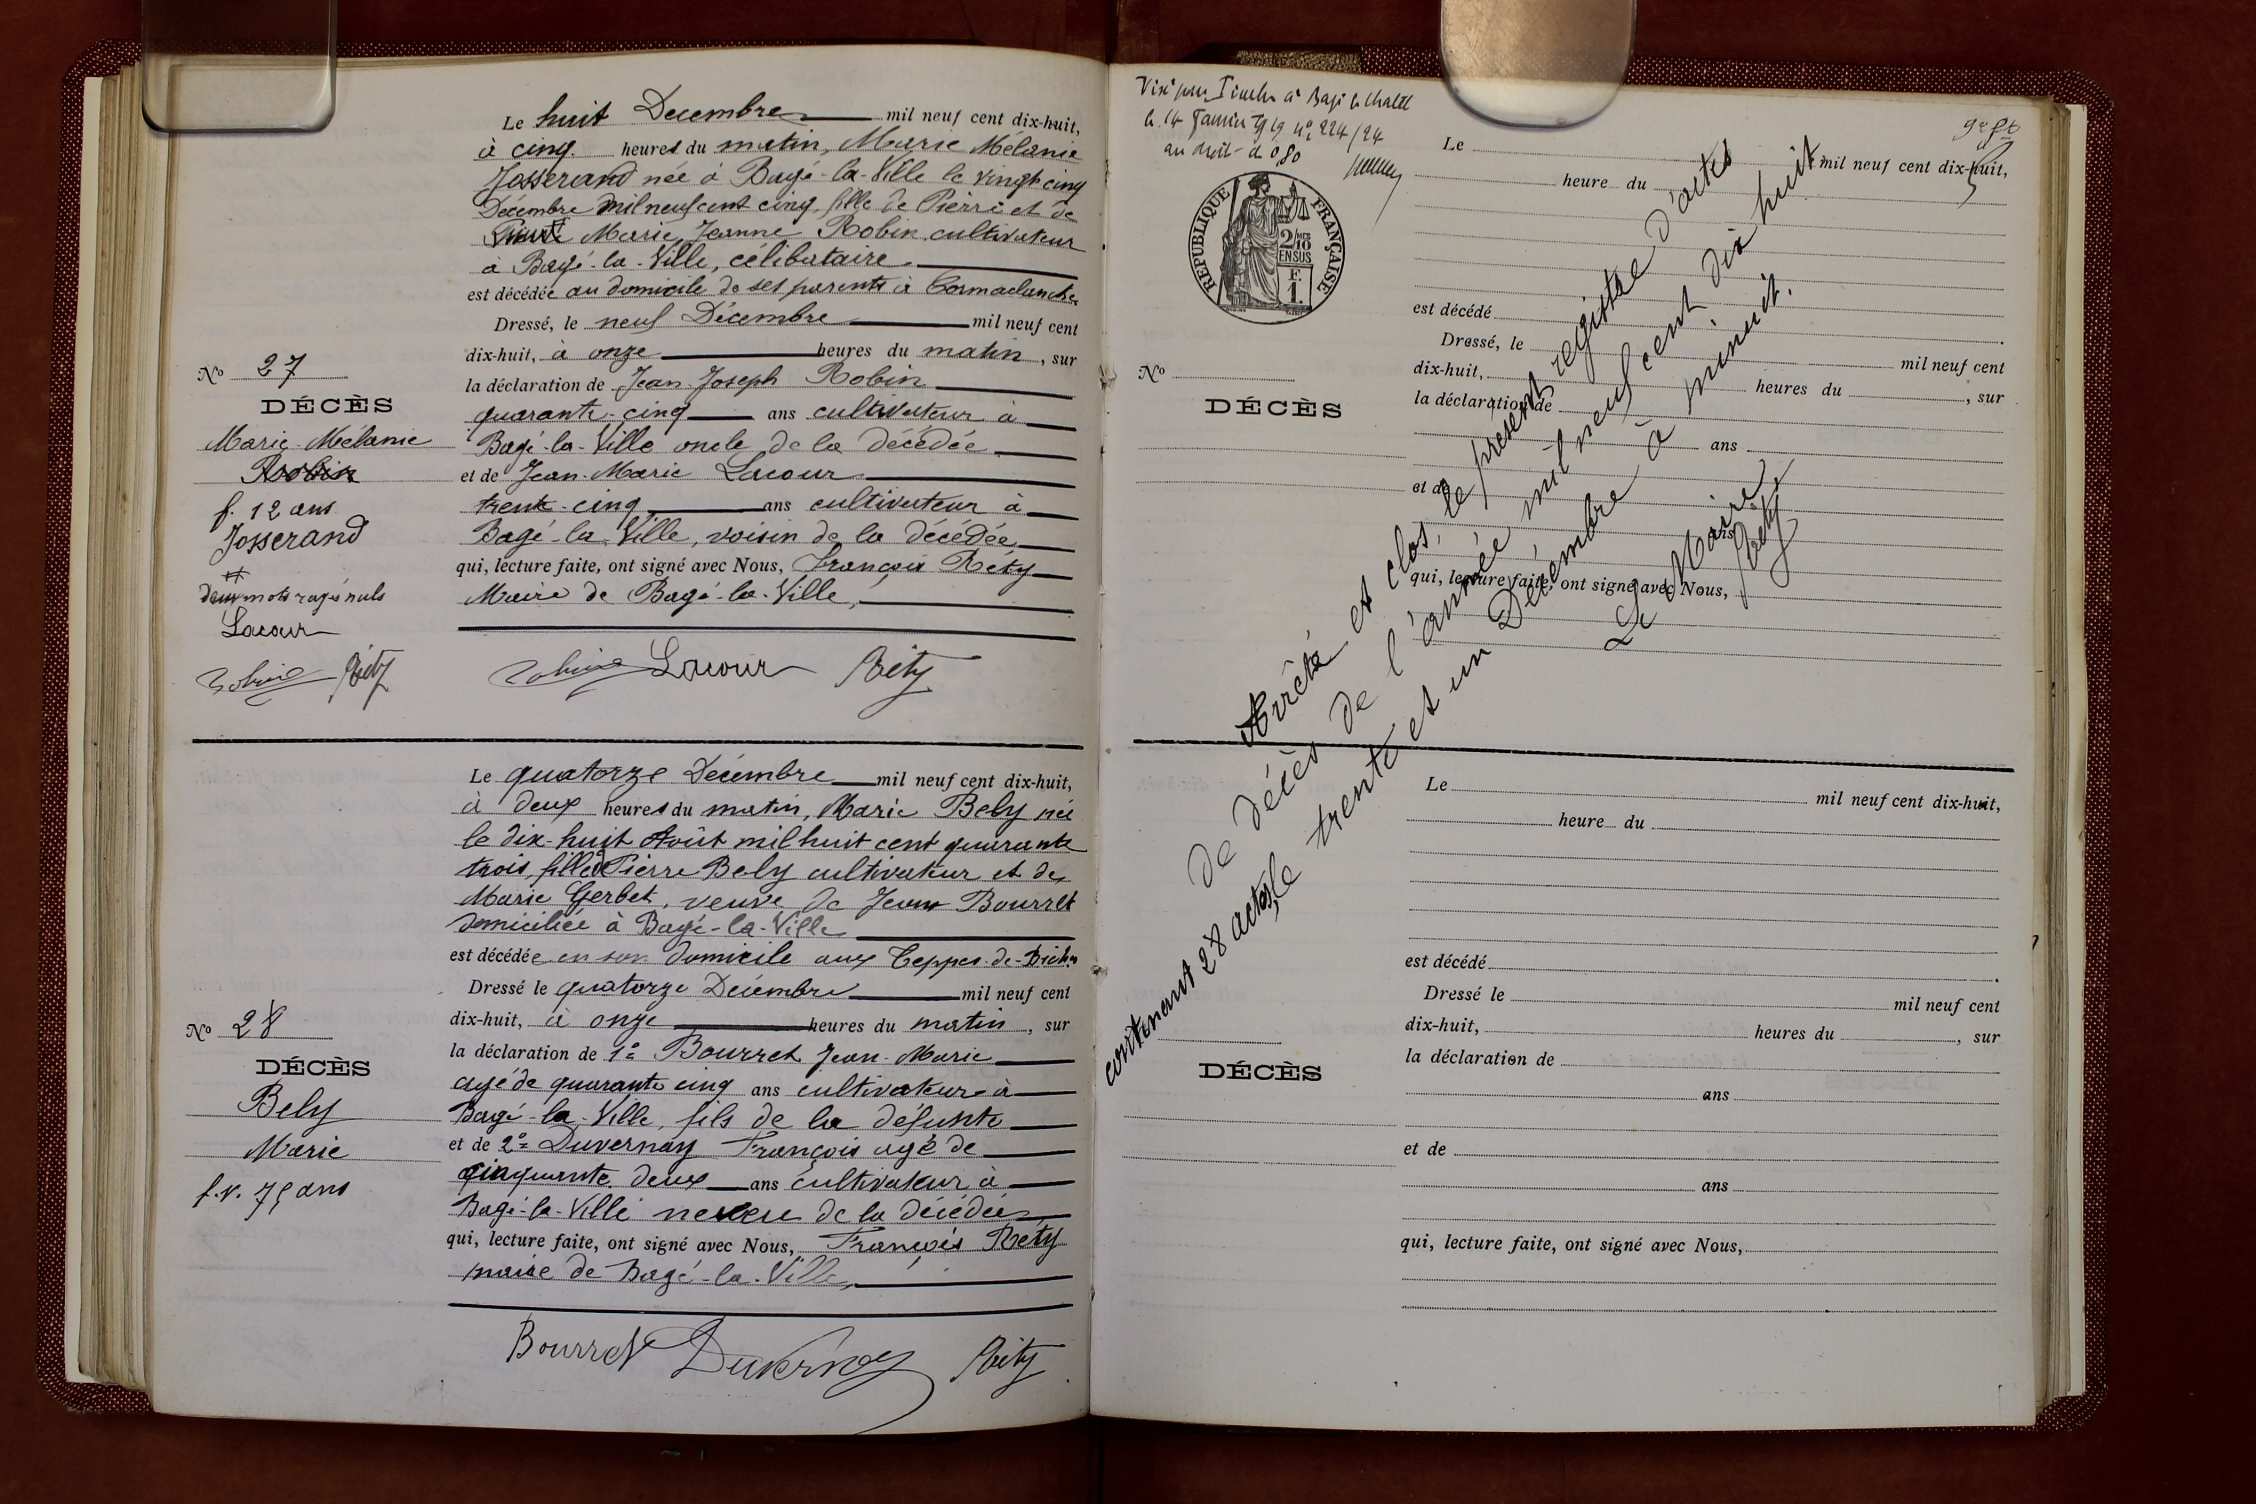 Le huit Decembre mil neuf cent dix-huit,
à cinq heures du matin, Marie Mélanie
Josserand née à Bagé-la-Ville le vingt cinq
Décembre mil neuf cent cinq, fille de Pierre et de
Marie Jeanne Robin cultivateur
à Bagé-la-Ville, célibataire
est décédée au domicile de ses parents à
Dressé, le neuf Décembre mil neuf cent
dix-huit, à onze heures du matin, sur
la déclaration de Jean Joseph Robin
quarante-cinq ans cultivateur à
Bagé-la-Ville oncle de la décédée
et de Jean-Marie Lacour
trente-cinq ans cultivateur à
Bagé-la-Ville, voisin de la décédée
qui, lecture faite, ont signé avec Nous, François Réty
Maire de Bagé-la-Ville,
Robin Lacour Réty
No 27
DÉCÈS
Marie-Mélanie
Robin
f. 12 ans
Josserand
deux mots rayés nuls
Lacour
Robin Réty
Le quatorze Décembre mil neuf cent dix-huit,
à deux heures du matin, Marie Bely née
le dix-huit Août mil huit cent quarante
trois, fille de Pierre Bely cultivateur et de
Marie Gerbet, veuve de Jean Bourret
domiciliée à Bagé-la-Ville
est décédée en son domicile aux Teppes-de-
Dressé le quatorze Décembre mil neuf cent
dix-huit, à onze heures du matin, sur
la déclaration de 1o Bourret Jean-Marie
agé de quarante cinq ans cultivateur à
Bagé-la-Ville, fils de la défunte
et de 2o Duvernay François agé de
cinquante deux ans cultivateur à
Bagé-la-Ville neveu de la décédée
qui, lecture faite, ont signé avec Nous, François Réty
maire de Bagé-la-Ville,
Bourret Duvernay Réty
No 28
DÉCÈS
Bely
Marie
f.v. 75 ans
Visé pour Timbre à Bagé le Chatel
le 14 Janvier 1919 no 224/24
au droit de 080
RÉPUBLIQUE FRANÇAISE
2/10
EN SUS
F.
1.
Le mil neuf cent dix-huit,
heure du
est décédé
Dressé, le mil neuf cent
dix-huit, heures du , sur
la déclaration de
ans
et de
ans
qui, lecture faite, ont signé avec Nous,
No
DÉCÈS
Arrêté et clos, le présent registre d'actes
de décès de l'année mil neuf cent dix huit
contenant 28 actes, le trente et un Décembre à minuit.
Le Maire,
Réty
Le mil neuf cent dix-huit,
heure du
est décédé
Dressé le mil neuf cent
dix-huit, heures du , sur
la déclaration de
ans
et de
ans
qui, lecture faite, ont signé avec Nous,
DÉCÈS